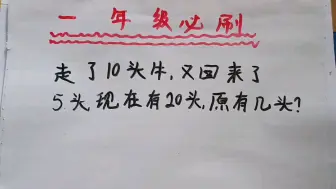 一年级必刷
走了10头牛,又回来了
5头,现在有20头,原有几头?